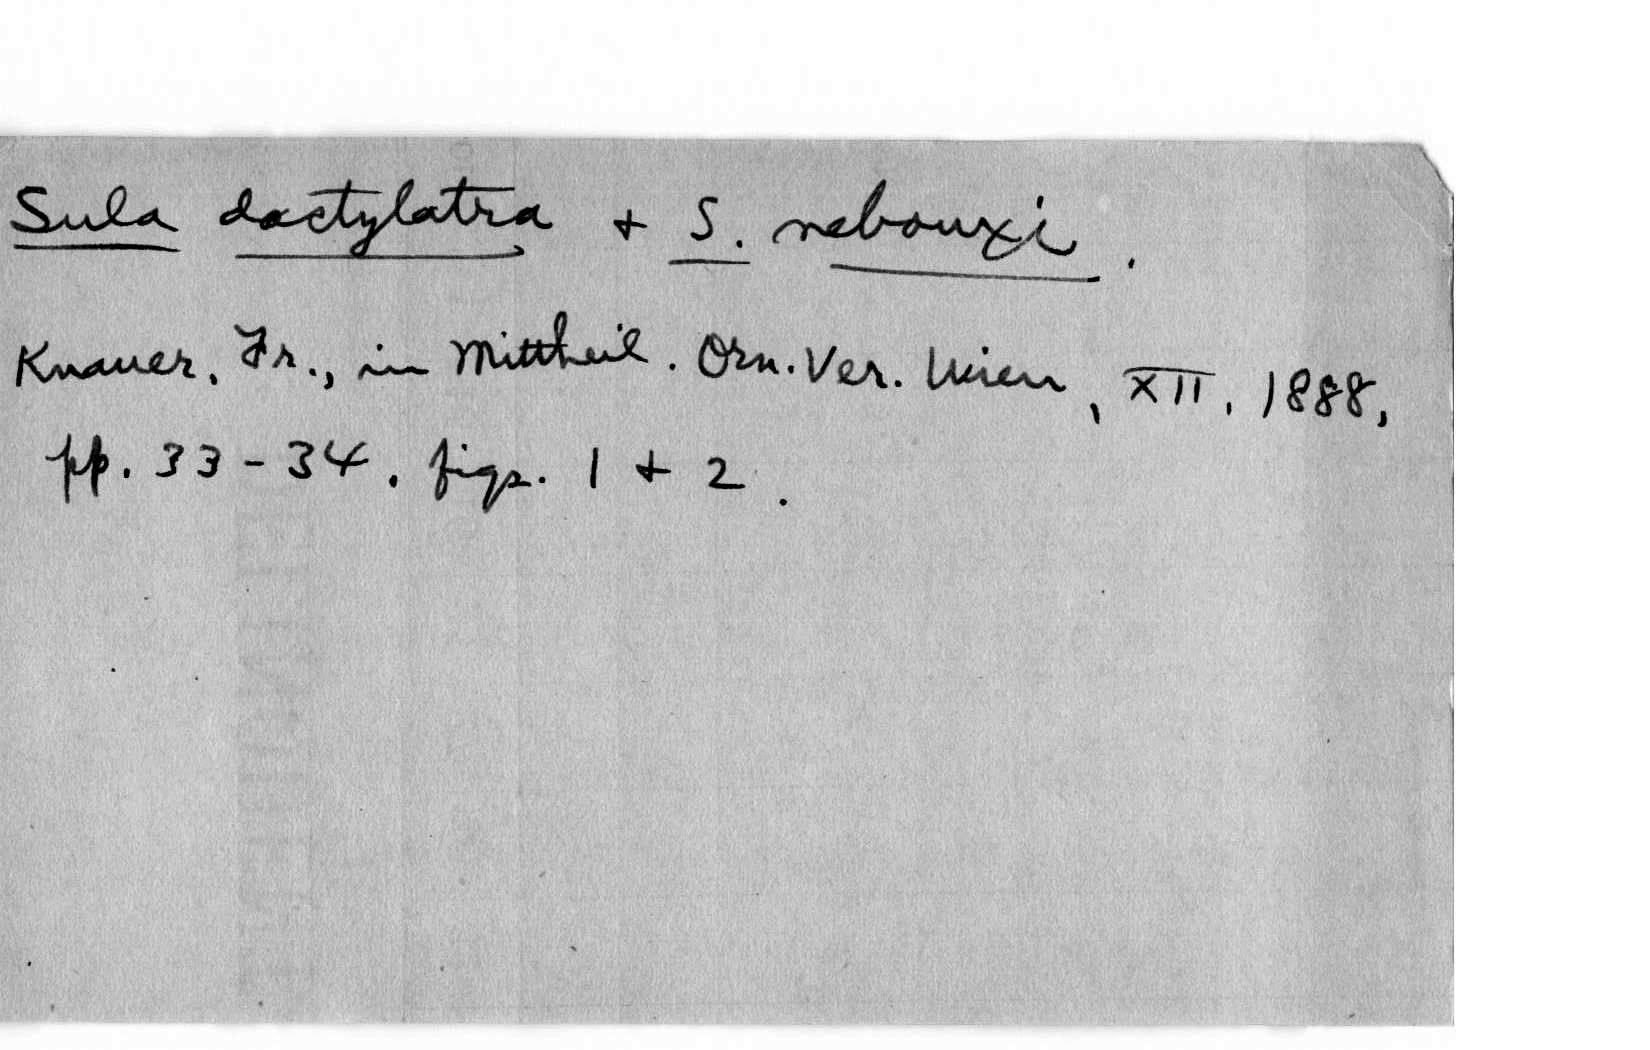 Sula dactylatra + S. nebouxi.
Knauer, Fr., in Mittheil. Orn. Ver. Wien, XII, 1888,
pp. 33-34. figs. 1 + 2.